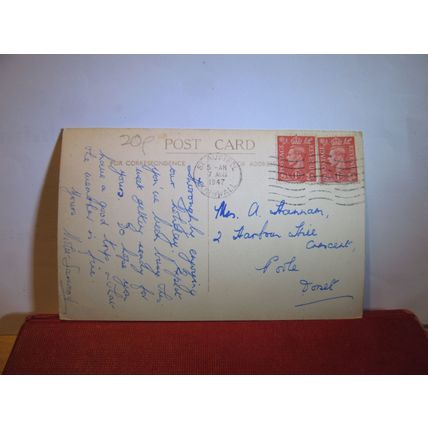 20p
POST CARD
FOR CORRESPONDENCE
FOR ADDRESS
5-AM
7 AUG
1947
CORNWALL
Thoroughly enjoying
our holiday. I expect
you've both been this
week getting ready for
yours. Do hope you
have a good trip & that
the weather is fine.
Yours
Mrs. A. Hannam,
2 Harbour Hill
Crescent,
Poole
Dorset